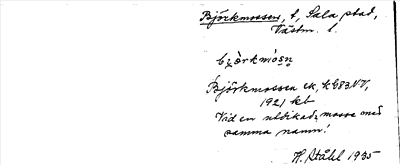 Björkmossen, t, Sala stad,
Västm. l.
Björkmossen ek, kG83NV,
1921 kbl
Vid en utdikad mosse med
samma namn!
H. Ståhl 1935